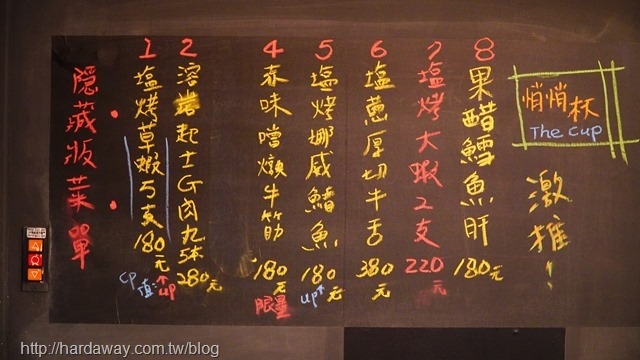 隱藏版菜單
1 塩烤草蝦5支180元
CP值↑up
2 溶岩起士G肉丸5本280元
4 春味噌燉牛筋180元
限量
5 塩烤挪威鯖魚180元
up↑
6 塩蔥厚切牛舌380元
7 塩烤大蝦2支220元
8 果醋鱈魚肝180元
悄悄杯
The Cup
激推!
http://hardaway.com.tw/blog